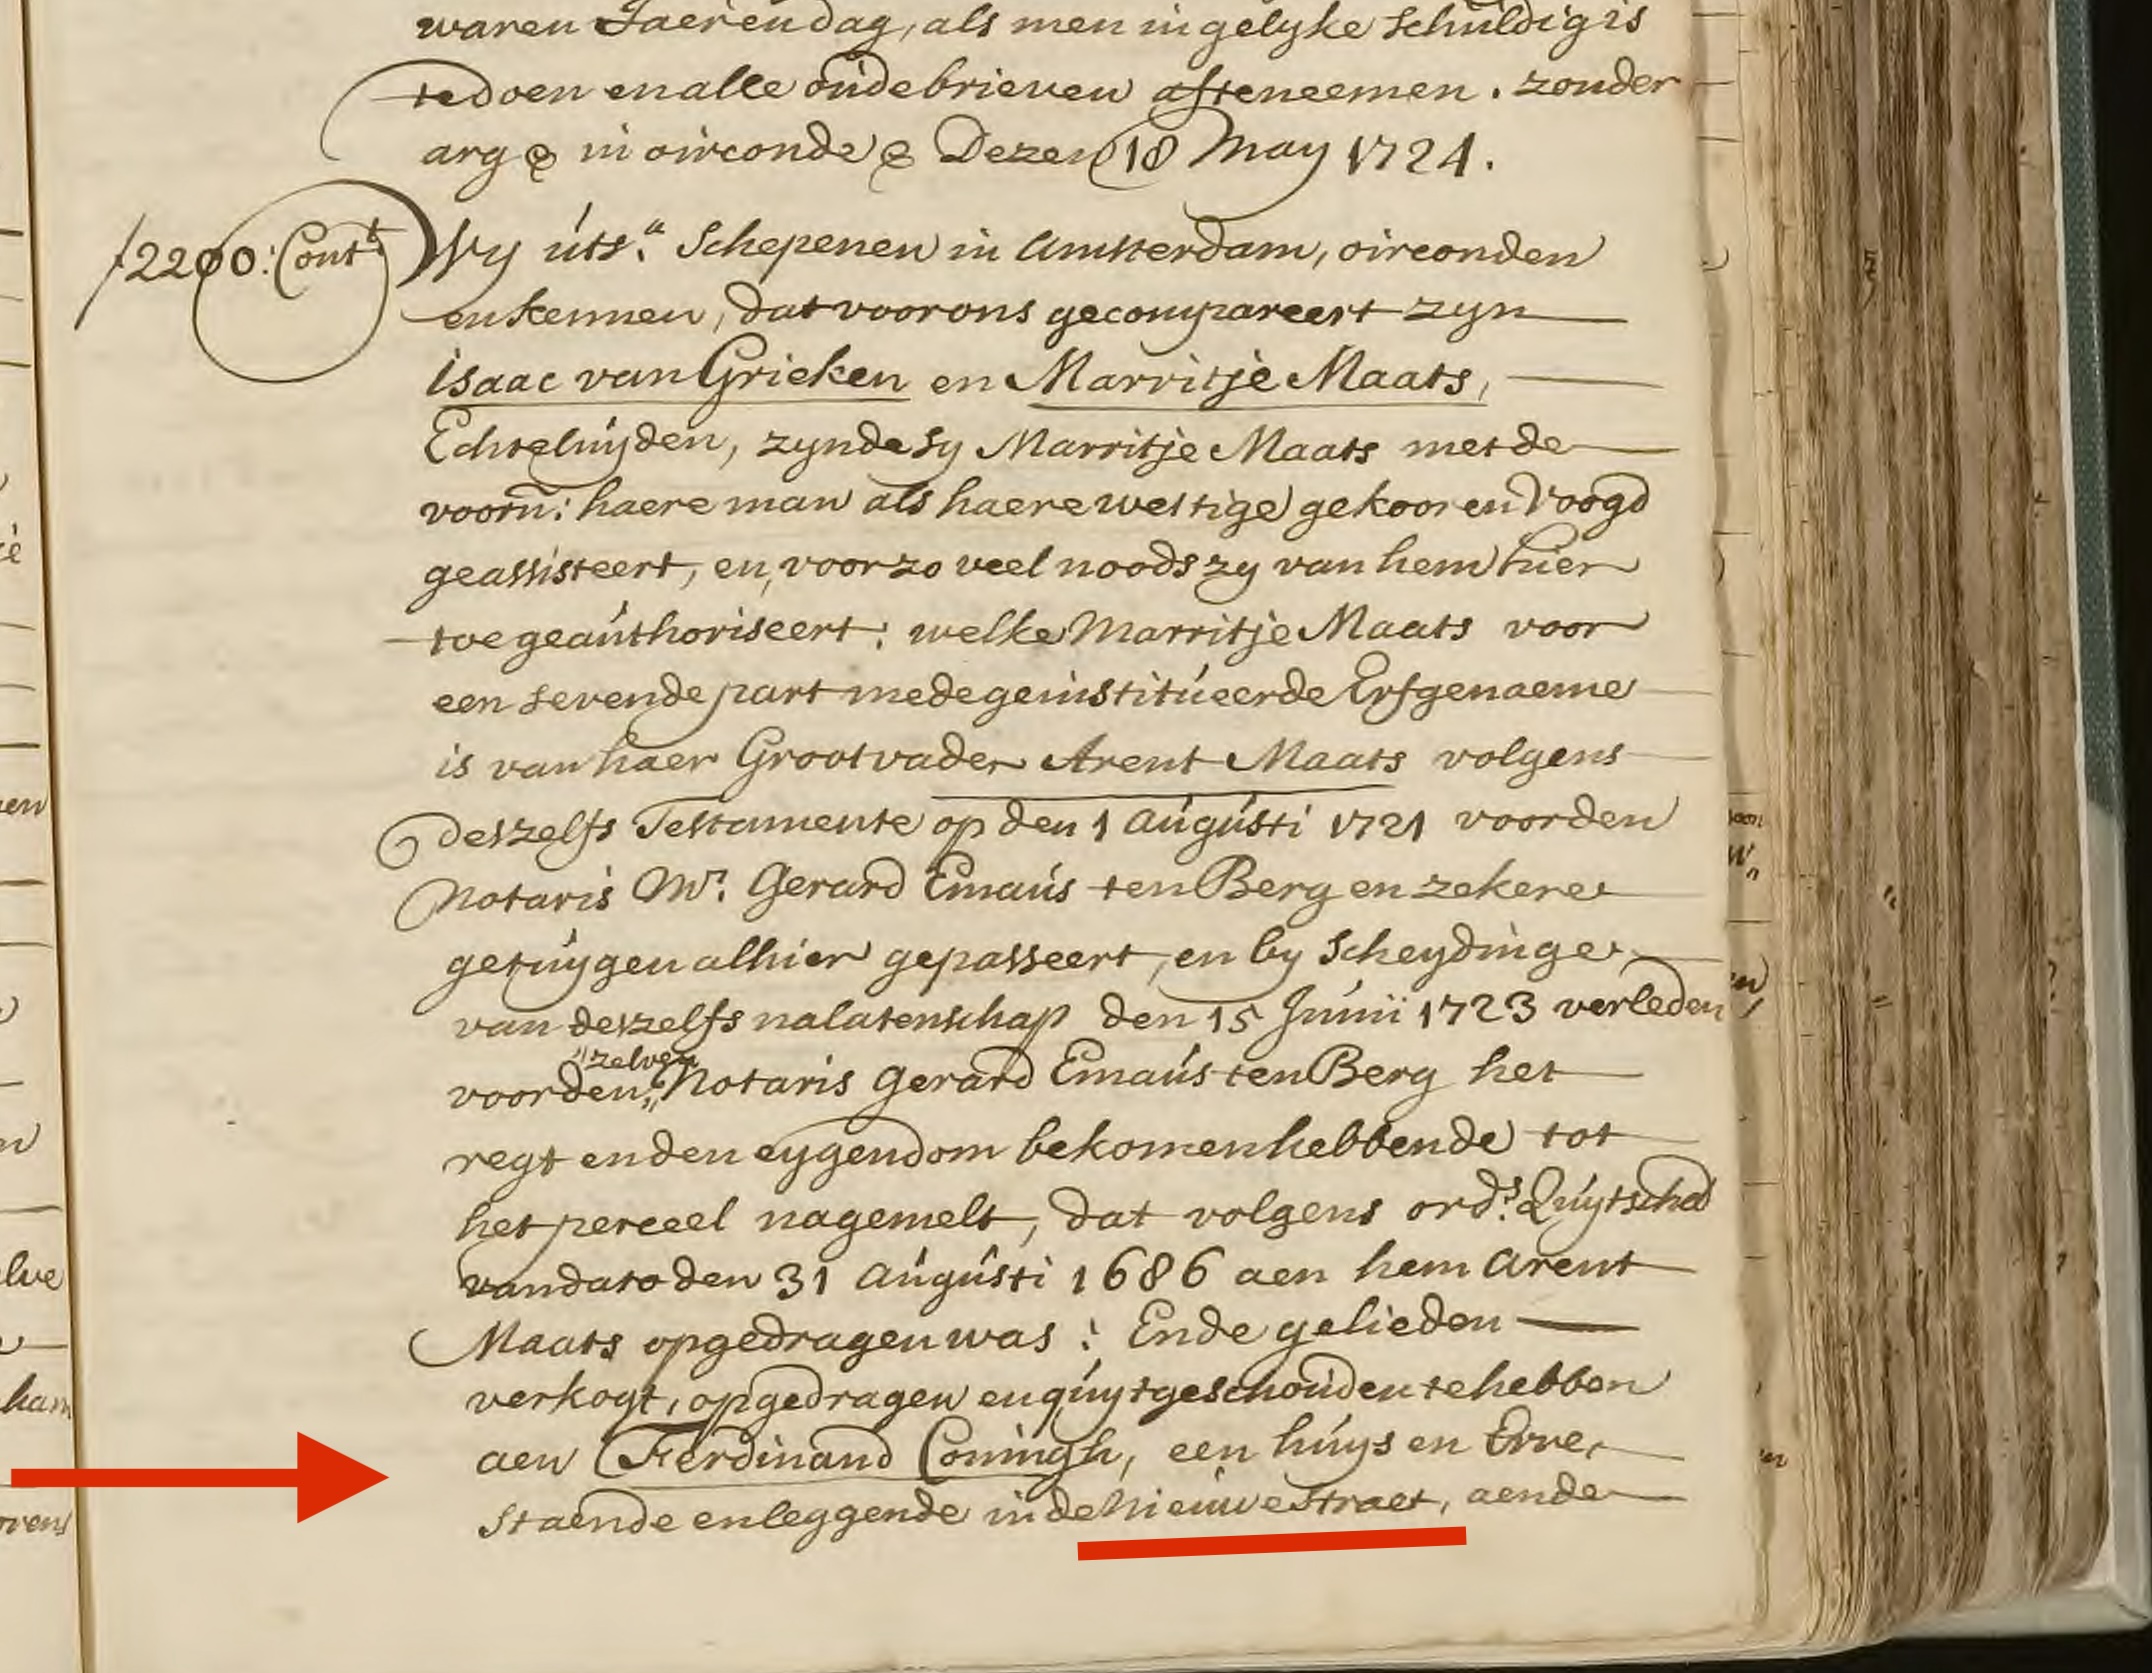 waren Jaer en dag, als men in gelyke schuldig is
te doen en alle oude brieven afteneemen. zonder
arg & in oirconde & Dezen 18 May 1724.
f 2200: Cont.t
Wy uts.a Schepenen in Amsterdam, oirconden
en kennen, dat voor ons gecompareert zyn
isaac van Grieken en Marritje Maats,
Echteluyden, zynde sy Marritje Maats met de
voorn: haere man als haere wettige gekooren Voogd
geassisteert, en, voor zo veel noods zy van hem hier
toe geauthoriseert: welke Marritje Maats voor
een sevende part mede geinstitueerde Erfgenaeme
is van haer Grootvader Arent Maats volgens
deszelfs Testamente op den 1 Augusti 1721 voor den
Notaris Mr. Gerard Emaus ten Berg en zekere
getuygen alhier gepasseert, en by Scheydinge
van deszelfs nalatenschap den 15 Junii 1723 verleden
voor den "zelven" Notaris Gerard Emaus ten Berg het
regt en den eygendom bekomen hebbende tot
het perceel nagemelt, dat volgens ord.s Quytschel
van dato den 31 Augusti 1686 aen hem Arent
Maats opgedragen was: Ende gelieden
verkogt, opgedragen en quytgeschouden te hebben
aen Ferdinand Coningh, een huys en Erve,
staende en leggende in de Nieuwestraet, aen de